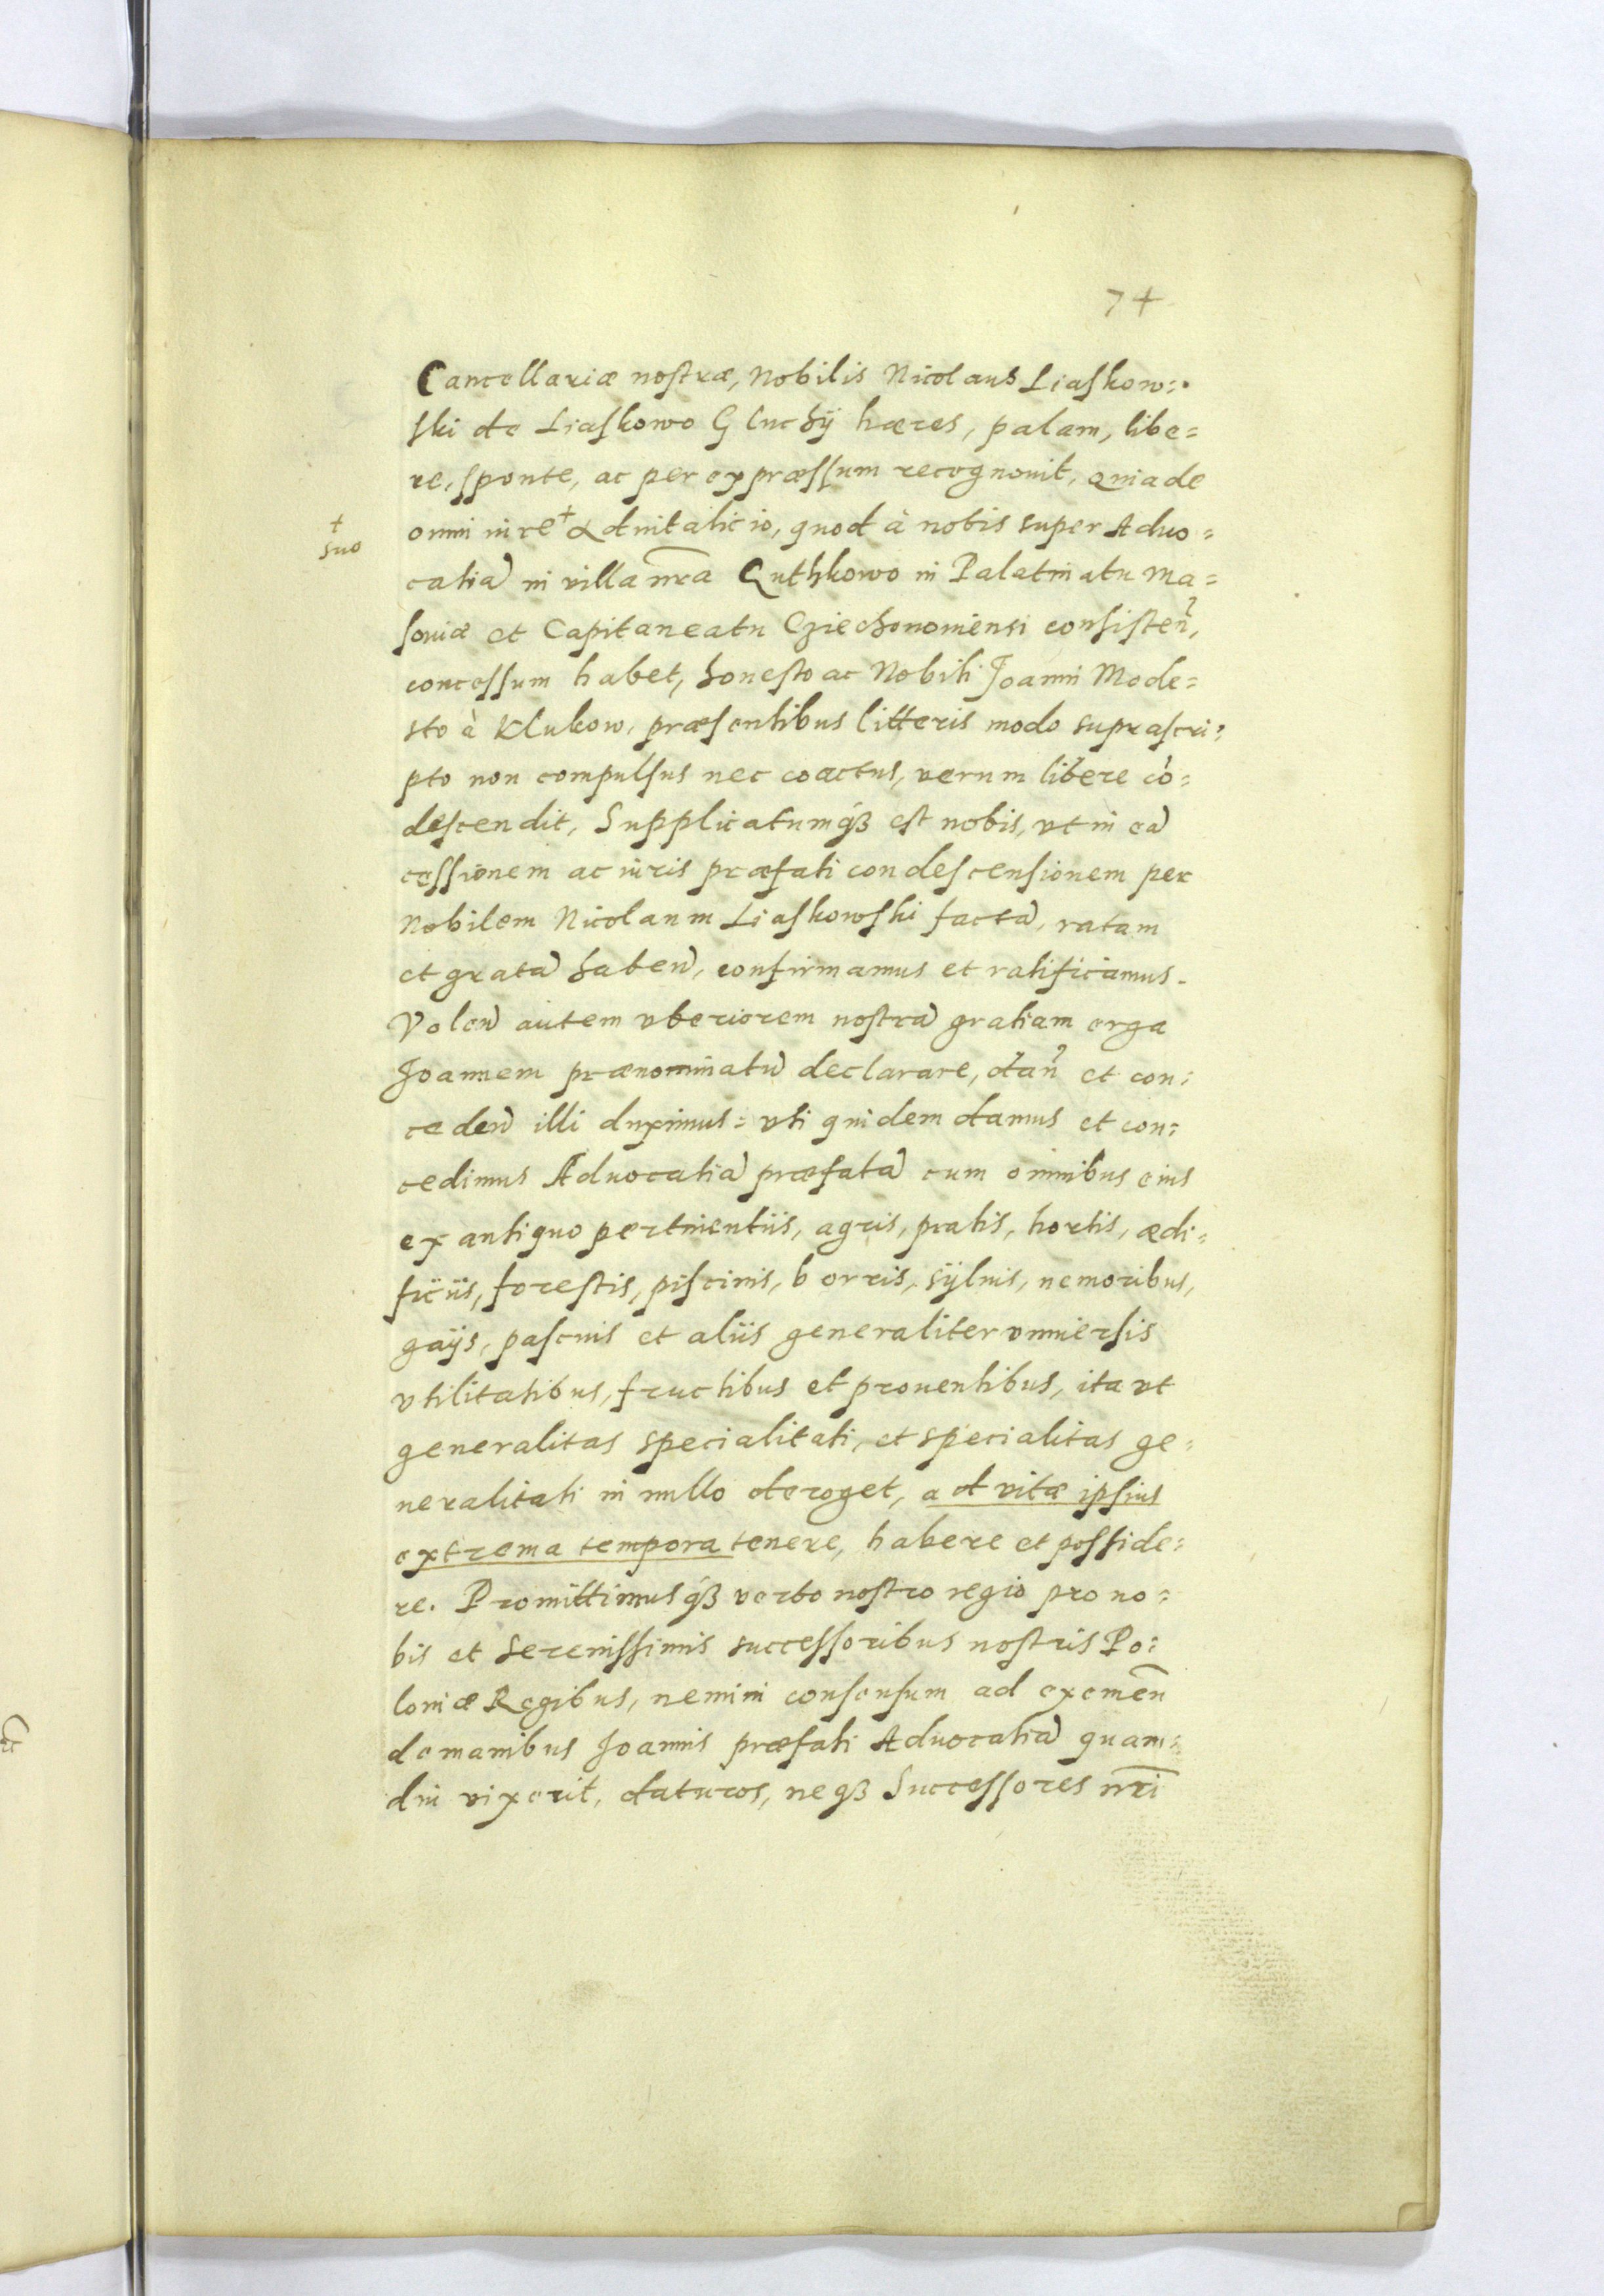 74
Cancellariæ nostræ, Nobilis Nicolaus Liaskow=
ski de Liaskowo Gluchÿ hæres, palam, libe=
re, sponte, ac per expræssum recognouit, quia de
omni iure + aduitalicio, quod à nobis super Aduo=
+ suo
catiã in villa nr̃a Guthkowo in Palatinatu Ma=
souiæ et Capitaneatu Cziechonouiensi consisteñ,
concessum habet, honesto ac Nobili Joanni Mode=
sto à Klukow, præsentibus litteris modo suprascri=
pto non compulsus nec coactus, verum libere cõ=
descendit, Supplicatumqꝫ est nobis, vt in eã
cessionem ac iuris præfati condescensionem per
Nobilem Nicolaum Liaskowski factã, ratam
et gratã habeñ, confirmamus et ratificamus.
Voleñ autem vberiorem nostrã gratiam erga
Joannem prænominatũ declarare, dañ et con=
cedeñ illi duximus: vti quidem damus et con=
cedimus Aduocatiã præfatã cum omnibus eius
ex antiquo pertinentiis, agris, pratis, hortis, ædi=
ficiis, forestis, piscinis, borris, sÿluis, nemoribus,
gaÿs, pascuis et aliis generaliter vniuersis
vtilitatibus, fructibus et prouentibus, ita vt
generalitas specialitati, et specialitas ge=
neralitati in nullo deroget, ad vitæ ipsius
extrema tempora tenere, habere et posside=
re. Promittimusqꝫ verbo nostro regio pro no=
bis et Serenissimis successoribus nostris Po=
loniæ Regibus, nemini consensum ad exemeñ
de manibus Joannis præfati Aduocatiã quam=
diu vixerit, daturos, neqꝫ Successores nr̃i